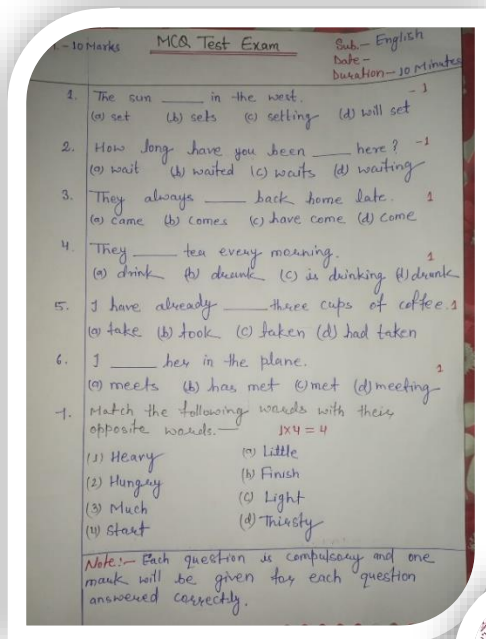 - 10 Marks
MCQ Test Exam
Sub.- English
Date -
Duration - 10 Minutes
1. The sun ____ in the west. - 1
(a) set (b) sets (c) setting (d) will set
2. How long have you been ____ here? -1
(a) wait (b) waited (c) waits (d) waiting
3. They always ____ back home late. 1
(a) came (b) comes (c) have come (d) come
4. They ____ tea every morning. 1
(a) drink (b) drunk (c) is drinking (d) drank
5. I have already ____ three cups of coffee. 1
(a) take (b) took (c) taken (d) had taken
6. I ____ her in the plane. 1
(a) meets (b) has met (c) met (d) meeting
7. Match the following words with their
opposite words.— 1x4 = 4
(1) Heavy (a) Little
(2) Hungry (b) Finish
(3) Much (c) Light
(4) Start (d) Thirsty
Note:- Each question is compulsory and one
mark will be given for each question
answered correctly.